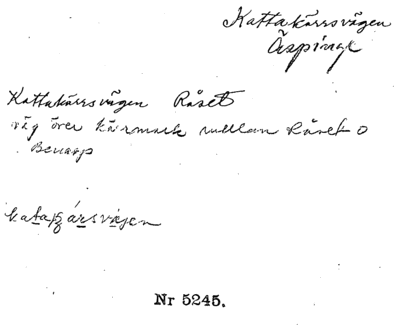 Kattakärrsvägen
Äspinge
Kattakärrsvägen Råset
väg över kärrmark mellan Råset o
Benarp
Nr 5245.